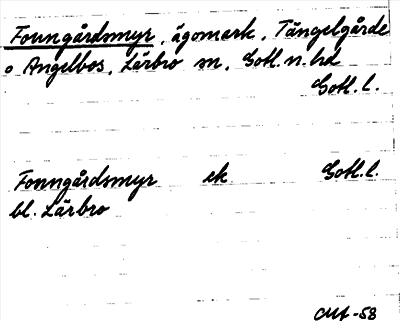 Fonngårdsmyr, ägomark, Tängelgårde
o Angelbos, Lärbro sn, Gotl. n. hd
Gotl. l.
Fonngårdsmyr ek Gotl. l.
bl. Lärbro
-58